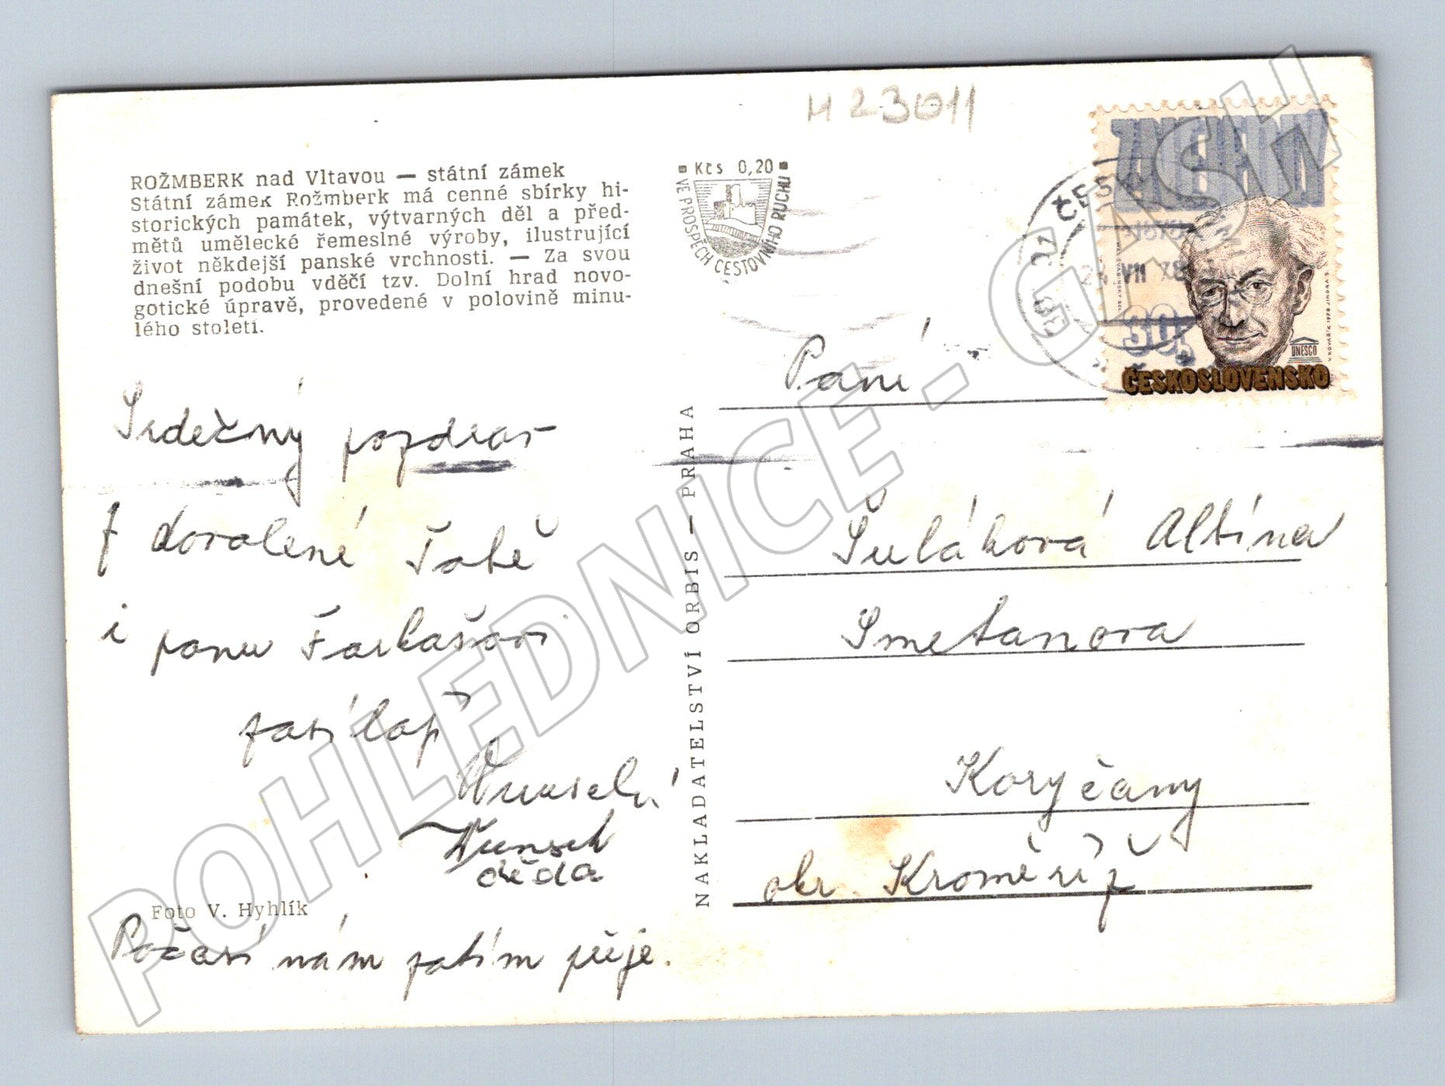 H 23011
ROŽMBERK nad Vltavou — státní zámek
Státní zámek Rožmberk má cenné sbírky hi-
storických památek, výtvarných děl a před-
mětů umělecké řemeslné výroby, ilustrující
život někdejší panské vrchnosti. — Za svou
dnešní podobu vděčí tzv. Dolní hrad novo-
gotické úpravě, provedené v polovině minu-
lého století.
Kčs 0,20
VE PROSPĚCH CESTOVNÍHO RUCHU
ČESK
VII 78
ZNEJEDLÝ
30h
UNESCO
ČESKOSLOVENSKO
Srdečný pozdrav
z dovolené Tobě
i panu Farkašovi
zasílají
Wunsch
děda
Foto V. Hyhlík
Počasí nám zatím přeje.
NAKLADATELSTVÍ ORBIS — PRAHA
Paní
Šuláková Albína
Smetanova
Koryčany
okr. Kroměříž
POHLEDNICE - GASH